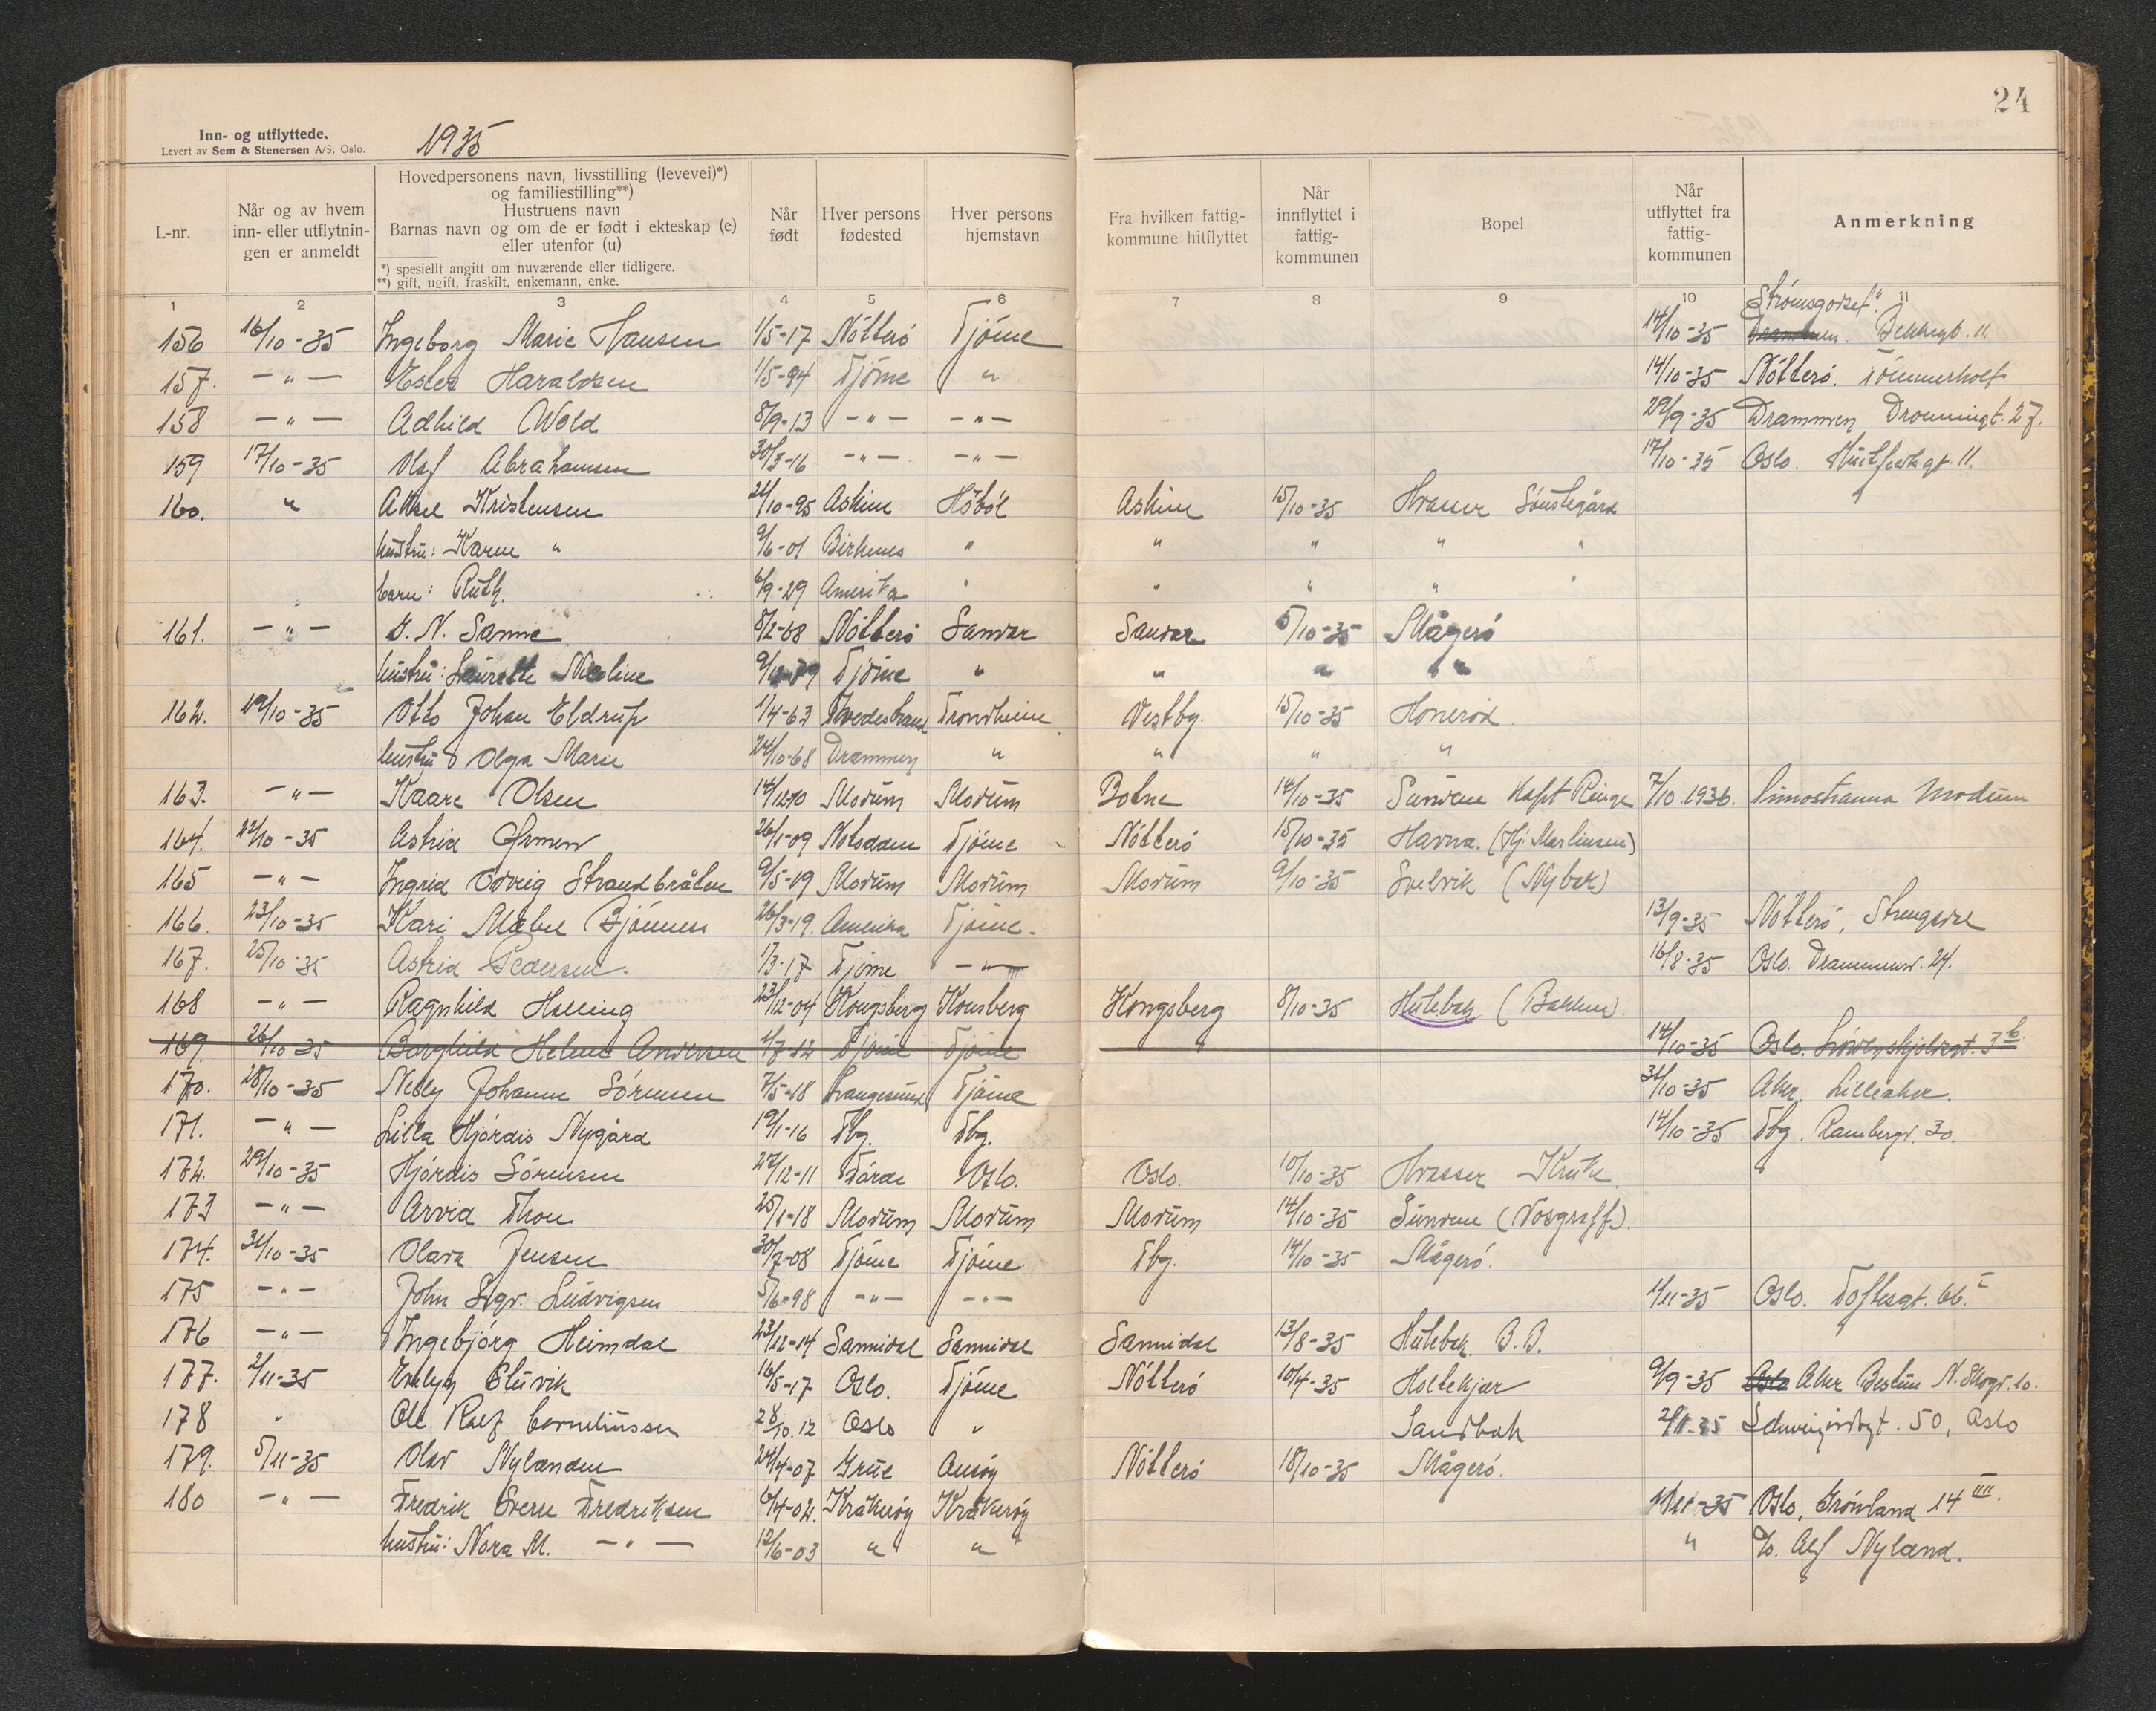 24
Inn- og utflyttede.
Levert av Sem & Stenersen A/S, Oslo.
1935
L-nr.
Når og av hvem inn- eller utflytnin- gen er anmeldt
Hovedpersonens navn, livsstilling (levevei)*)
og familiestilling**)
Hustruens navn
Barnas navn og om de er født i ekteskap (e)
eller utenfor (u)
*) spesiellt angitt om nuværende eller tidligere.
**) gift, ugift, fraskilt, enkemann, enke.
Når født
Hver persons fødested
Hver persons hjemstavn
Fra hvilken fattig- kommune hitflyttet
Når innflyttet i fattig- kommunen
Bopel
Når utflyttet fra fattig- kommunen
Anmerkning
1 2 3 4 5 6 7 8 9 10 11
Strømsgodset
156 16/10-35 Ingeborg Marie Hansen 1/5-17 Nötterö Tjöme 14/10-35 Drammen.
157. -"- Haraldsen 1/5-94 Tjöme " 14/10-35 Nötterö. Tömmerholt
158 -"- Adhild Wold 8/9-13 -"- -"- 29/9-35 Drammen Dronningt. 27.
159 17/10-35 Olaf Abrahamsen 30/3-16 -"- -"- 17/10-35 Oslo. Huitfeldtgt 11.
160. " Aksel Kristensen 21/10-95 Askim Höböl Askim 15/10-35 Hvasser Sönstegård
hustru: Karen " 9/6-01 Birkenes " " " " "
barn: Ruth. 6/9-29 Amerika " " " " "
161. -"- S. N. Sanne 8/2-08 Nötterö Sandar Sandar 5/10-35 Mågerö
hustru: Laurette Nicoline Tjöme " " " "
162. 19/10-35 Otto Johan Eldrup 1/4-63 Tvedestrand Trondheim Vestby. 15/10-35 Honeröd.
hustru Olga Marie 24/10-68 Drammen " " " "
163. -"- Kaare Olsen 14/12-10 Modum Modum Botne 14/10-35 Sundene Kapt Ringe 7/10.1936. Simostranna Modum
164. 22/10-35 Astrid 26/1-09 Notodden Tjöme Nötterö 15/10-35 Havna. (Hj. Martinsen)
165 -"- Ingrid Odveig Strandbråten 9/5-09 Modum Modum Modum 9/10-35 Svelvik (Nybak)
166. 23/10-35 Kari Mabel Bjönness 26/3-19. Amerika Tjöme. 13/9-35 Nötterö,
167. 25/10-35 Astrid Pedersen. 1/3-17 Tjöme -"- 16/8-35 Oslo. Drammensv. 24.
168 -"- Ragnhild Halling 23/12-04 Kongsberg Konsberg Kongsberg 8/10-35 Hulebak (Bakken).
169. 26/10-35 Borghild Helene Andersen 1/7-12 Tjöme Tjöme 14/10-35 Oslo. Lövenskjoldsgt. 3 b.
170. 28/10-35 Nelly Johanne Sörensen 7/5-18 Langesund Tjöme 31/10-35 Aker. Lilleaker.
171. -"- Lilla Hjördis Nygård 19/1-16 Tbg. Tbg. 14/10-35 Tbg. Rambergv. 30.
172. 29/10-35 Hjördis Sörensen 27/12-11 Förde Oslo. Oslo. 10/10-35 Hvasser Kruke.
173 -"- Arvid Thon 25/1-18 Modum Modum Modum 14/10-35 Sundene (Vosgraff).
174. 31/10-35 Olava Jensen 30/7-08 Tjöme Tjöme Tbg. 14/10-35 Mågerö.
175 -"- John Sigv. Ludvigsen 5/6-98 -"- -"- 1/11-35 Oslo. Toftesgt. 66. I
176 -"- Ingebjörg Heimdal 23/12-14 Sannidal Sannidal Sannidal 13/8-35 Hulebak. B.B.
177. 2/11-35 Evelyn Eluvik 16/5-17 Oslo. Tjöme Nötterö 10/4-35 Holtekjær 9/9-35 Oslo Aker Bestum N. Skogv. 10.
178 " Ole Ralf Corneliussen 28/10.12 Oslo " Sandbak 2/11-35 Schweigårdsgt. 50, Oslo
179. 5/11-35 Olav Nylanden 24/4-07 Grue Nötterö 18/10-35 Mågerö.
180 -"- Fredrik Sverre Fredriksen 6/4-02. Kråkeröy Kråkeröy 1/11-35 Oslo, Grönland 14 III.
hustru: Nora M. -"- 12/6-03 " " " c/o. Alf Nyland.